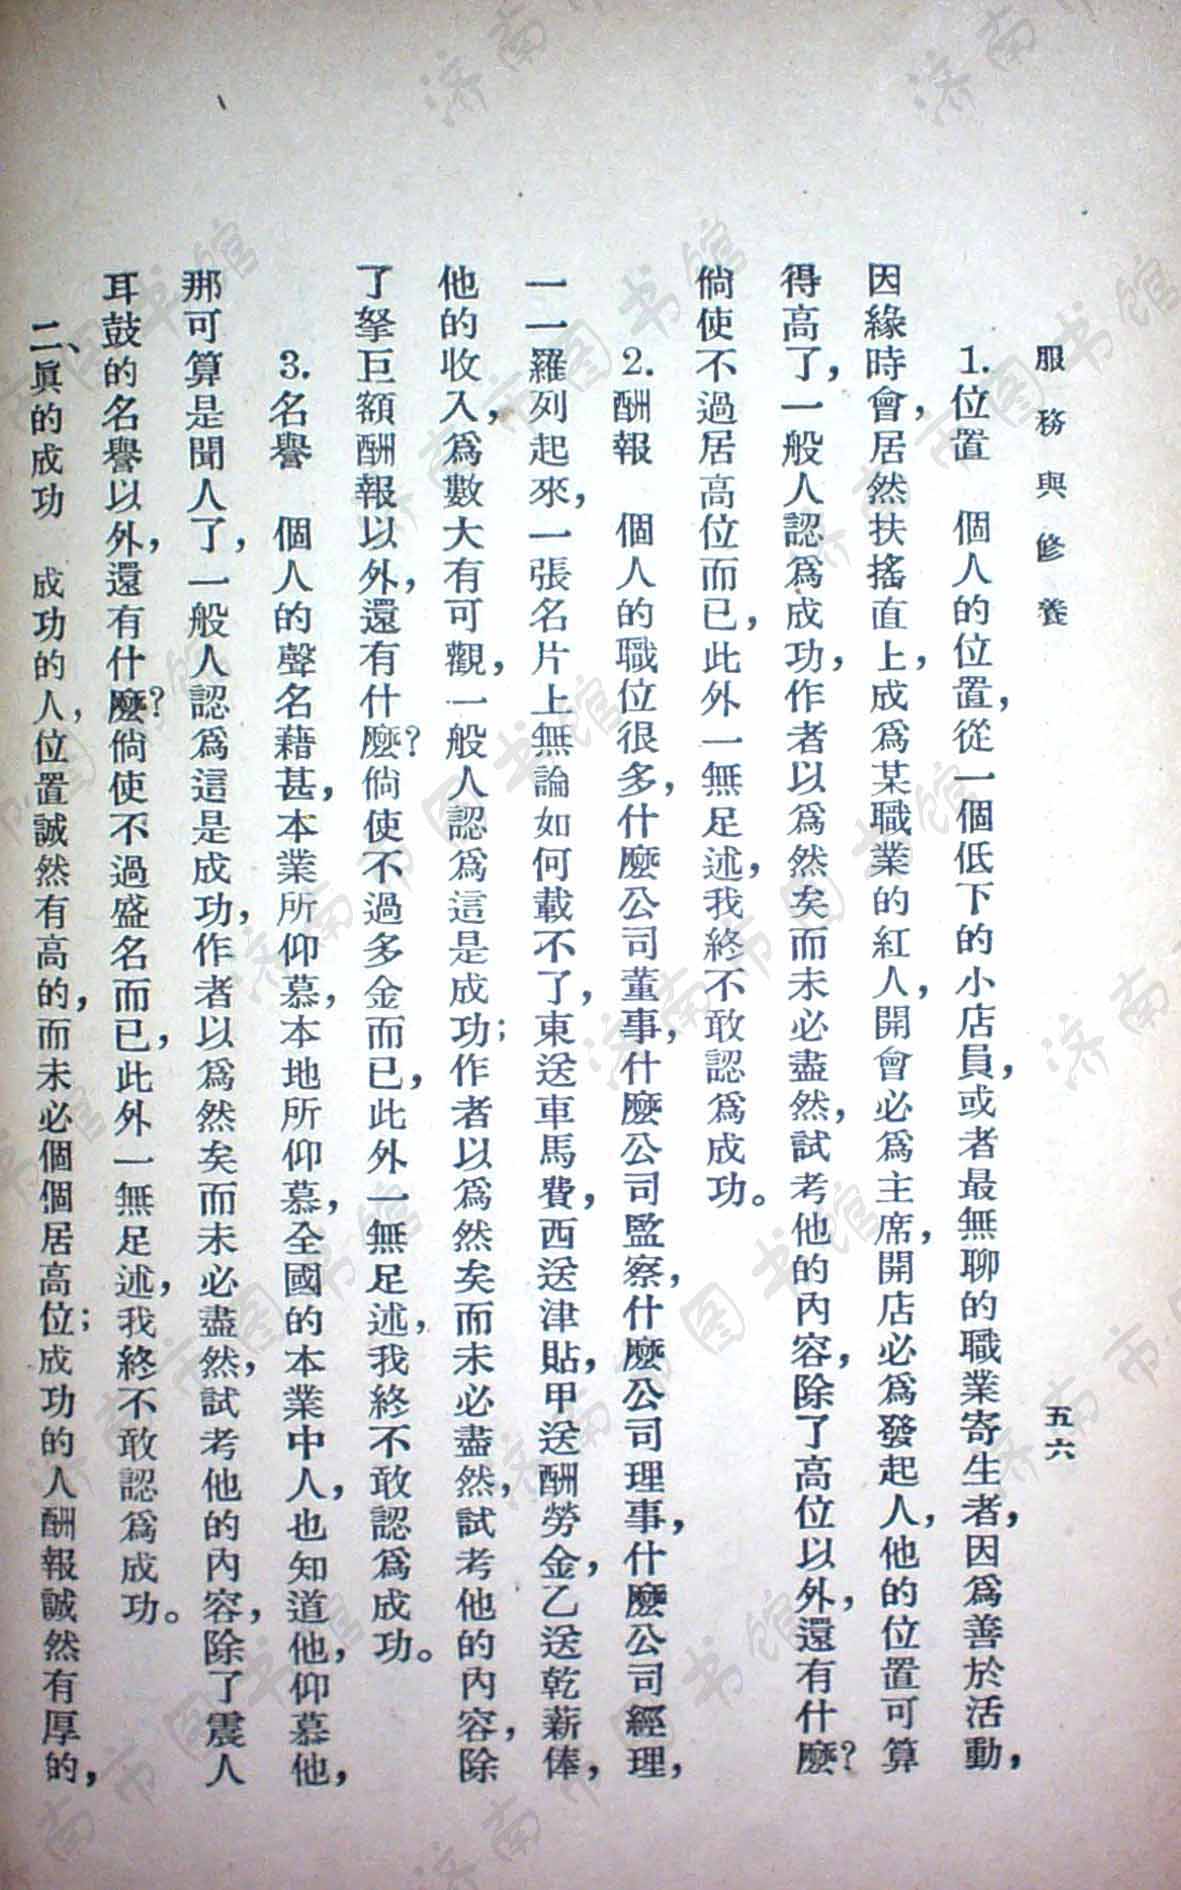 服務與修養
五六
1.位置　個人的位置，從一個低下的小店員，或者最無聊的職業寄生者，因爲善於活動，
因緣時會，居然扶搖直上，成爲某職業的紅人，開會必爲主席，開店必爲發起人，他的位置可算
得高了，一般人認爲成功，作者以爲然矣而未必盡然，試考他的內容，除了高位以外，還有什麼？
倘使不過居高位而已，此外一無足述，我終不敢認爲成功。
2.酬報　個人的職位很多，什麼公司董事，什麼公司監察，什麼公司理事，什麼公司經理，
一一羅列起來，一張名片上無論如何載不了，東送車馬費，西送津貼，甲送酬勞金，乙送乾薪俸，
他的收入，爲數大有可觀，一般人認爲這是成功；作者以爲然矣而未必盡然，試考他的內容，除
了拏巨額酬報以外，還有什麼？倘使不過多金而已，此外一無足述，我終不敢認爲成功。
3.名譽　個人的聲名藉甚，本業所仰慕，本地所仰慕，全國的本業中人，也知道他，仰慕他，
那可算是聞人了，一般人認爲這是成功，作者以爲然矣而未必盡然，試考他的內容，除了震人
耳鼓的名譽以外，還有什麼？倘使不過盛名而已，此外一無足述，我終不敢認爲成功。
二、眞的成功　成功的人，位置誠然有高的，而未必個個居高位；成功的人酬報誠然有厚的，
濟南市图书馆